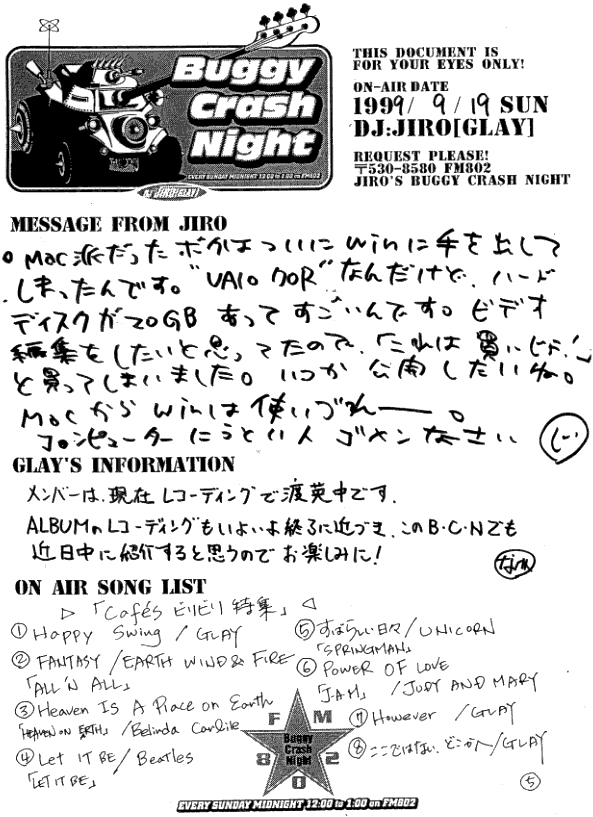 Buggy
Crash
Night
EVERY SUNDAY MIDNIGHT 12:00 to 1:00 on FM802
DJ:JIRO[GLAY]
THIS DOCUMENT IS
FOR YOUR EYES ONLY!
ON-AIR DATE
1999/9/19 SUN
DJ:JIRO[GLAY]
REQUEST PLEASE!
〒530-8580 FM802
JIRO'S BUGGY CRASH NIGHT
MESSAGE FROM JIRO
○ Mac派だったボクはついにWinに手を出して
しまったんです。"VAIO クロR"なんだけど、ハード
ディスクが20GBあってすごいんです。ビデオ
編集をしたいと思ってたので、「これは買いじゃ!」
と買ってしまいました。いつか公開したいね。
MacからWinは使いづれー。
コンピューターにうとい人ゴメンなさい
GLAY'S INFORMATION
メンバーは、現在レコーディングで渡英中です。
ALBUMのレコーディングもいよいよ終るに近づき、このB・C・Nでも
近日中に紹介すると思うのでお楽しみに!
ON AIR SONG LIST
▷「Cafés ビリビリ特集」◁
① Happy Swing / GLAY
② FANTASY / EARTH WIND & FIRE
「ALL 'N ALL」
③ Heaven Is A Place on Earth
「HEAVEN ON EARTH」/ Belinda Carlile
④ Let IT BE / Beatles
「LET IT BE」
⑤ すばらしい日々 / UNICORN
「SPRINGMAN」
⑥ POWER OF LOVE
「J・A・M」 / JUDY AND MARY
⑦ However / GLAY
⑧ ここではない、どこかへ / GLAY
⑤
F M
Buggy
Crash
Night
8 0 2
EVERY SUNDAY MIDNIGHT 12:00 to 1:00 on FM802